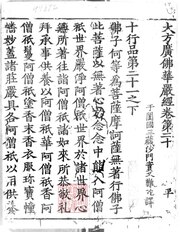 大方廣佛華嚴經卷第二十 平
于闐國三藏沙門實叉難陀譯
十行品第二十一之下
佛子何等為菩薩摩訶薩無著行佛子
此菩薩以無著心於念念中能入阿僧
祇世界嚴淨阿僧祇世界於諸世界心
無所著往詣阿僧祇諸如來所恭敬禮
拜承事供養以阿僧祇華阿僧祇香阿
僧祇鬘阿僧祇塗香末香衣服珍寶幢
幡妙蓋諸莊嚴具各阿僧祇以用供養